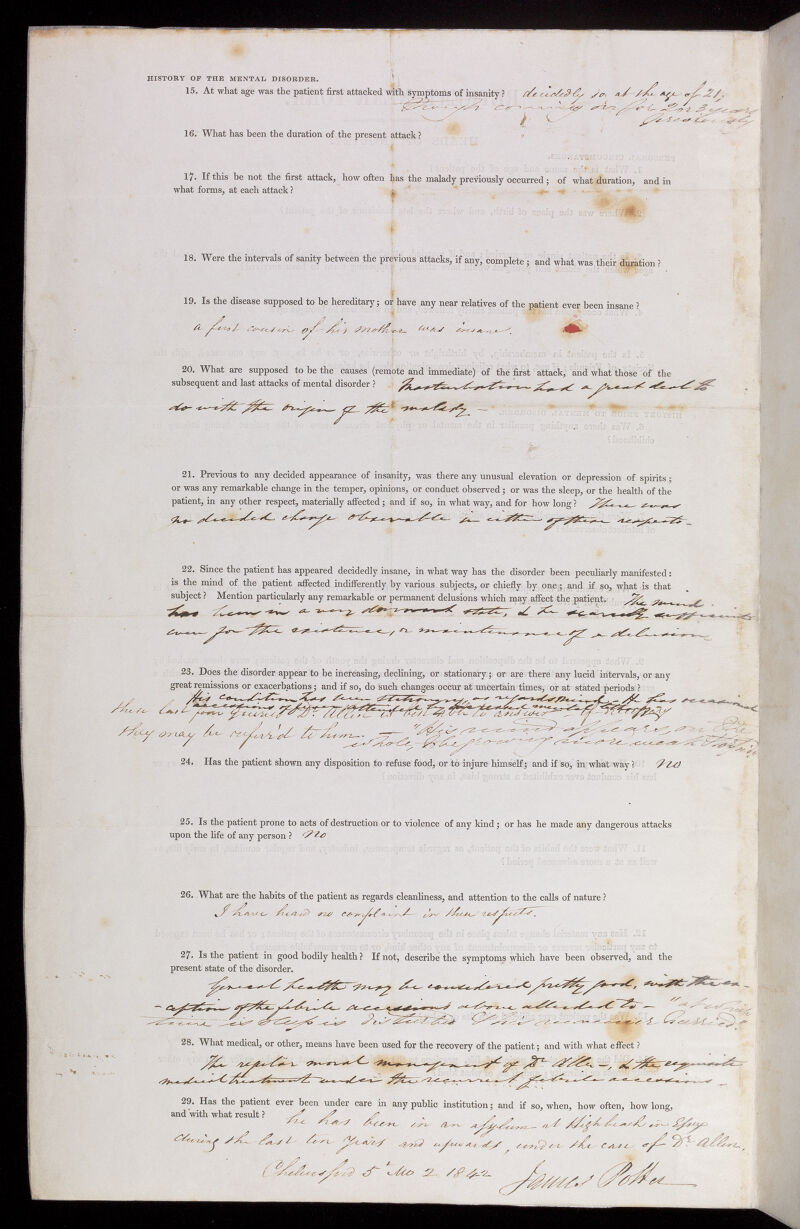 HISTORY OF THE MENTAL DISORDER.
15. At what age was the patient first attacked with symptoms of insanity? decidedly so at the age of 21,
though coming on for 2 or 3 years
previously
16. What has been the duration of the present attack?
17. If this be not the first attack, how often has the malady previously occurred; of what duration, and in
what forms, at each attack?
18. Were the intervals of sanity between the previous attacks, if any, complete; and what was their duration?
19. Is the disease supposed to be hereditary; or have any near relatives of the patient ever been insane?
a first cousin of his mother was insane.
20. What are supposed to be the causes (remote and immediate) of the first attack, and what those of the
subsequent and last attacks of mental disorder? Masturbation had a great deal to
do with the origin of the malady. —
21. Previous to any decided appearance of insanity, was there any unusual elevation or depression of spirits;
or was any remarkable change in the temper, opinions, or conduct observed; or was the sleep, or the health of the
patient, in any other respect, materially affected; and if so, in what way, and for how long? There was
no decided change observable in either of these respects —
22. Since the patient has appeared decidedly insane, in what way has the disorder been peculiarly manifested:
is the mind of the patient affected indifferently by various subjects, or chiefly by one; and if so, what is that
subject? Mention particularly any remarkable or permanent delusions which may affect the patient. The mind
has been in a very dormant state, & he scarcely sufficient
even for the existence, or maintenance of a delusion
23. Does the disorder appear to be increasing, declining, or stationary; or are there any lucid intervals, or any
great remissions or exacerbations; and if so, do such changes occur at uncertain times, or at stated periods?
His condition has been stationary, as regards mind. He has occasional
accessions of fever attended by increased mental
these last four queries Dr. Allen is best able to answer
they may be referr'd to him — "His mind appears, on the
whole, to be growing more weak
24. Has the patient shown any disposition to refuse food, or to injure himself; and if so, in what way? No
25. Is the patient prone to acts of destruction or to violence of any kind; or has he made any dangerous attacks
upon the life of any person? No
26. What are the habits of the patient as regards cleanliness, and attention to the calls of nature?
I have heard no complaint in these respects.
27. Is the patient in good bodily health? If not, describe the symptoms which have been observed, and the
present state of the disorder.
General health may be considered pretty good, with the ex-
-ception of the febrile accessions above alluded to —
sleep is disturbed & his manner hurried."
28. What medical, or other, means have been used for the recovery of the patient; and with what effect?
The regular moral management of Dr Allen, & the requisite
medical treatment under the recurrent febrile accessions —
29. Has the patient ever been under care in any public institution; and if so, when, how often, how long,
and with what result? he has been in an asylum at Highbeach in Essex
during the last ten years and upwards, under the care of Dr. Allen.
Chelmsford 5th Mo 2 1842 James Potter